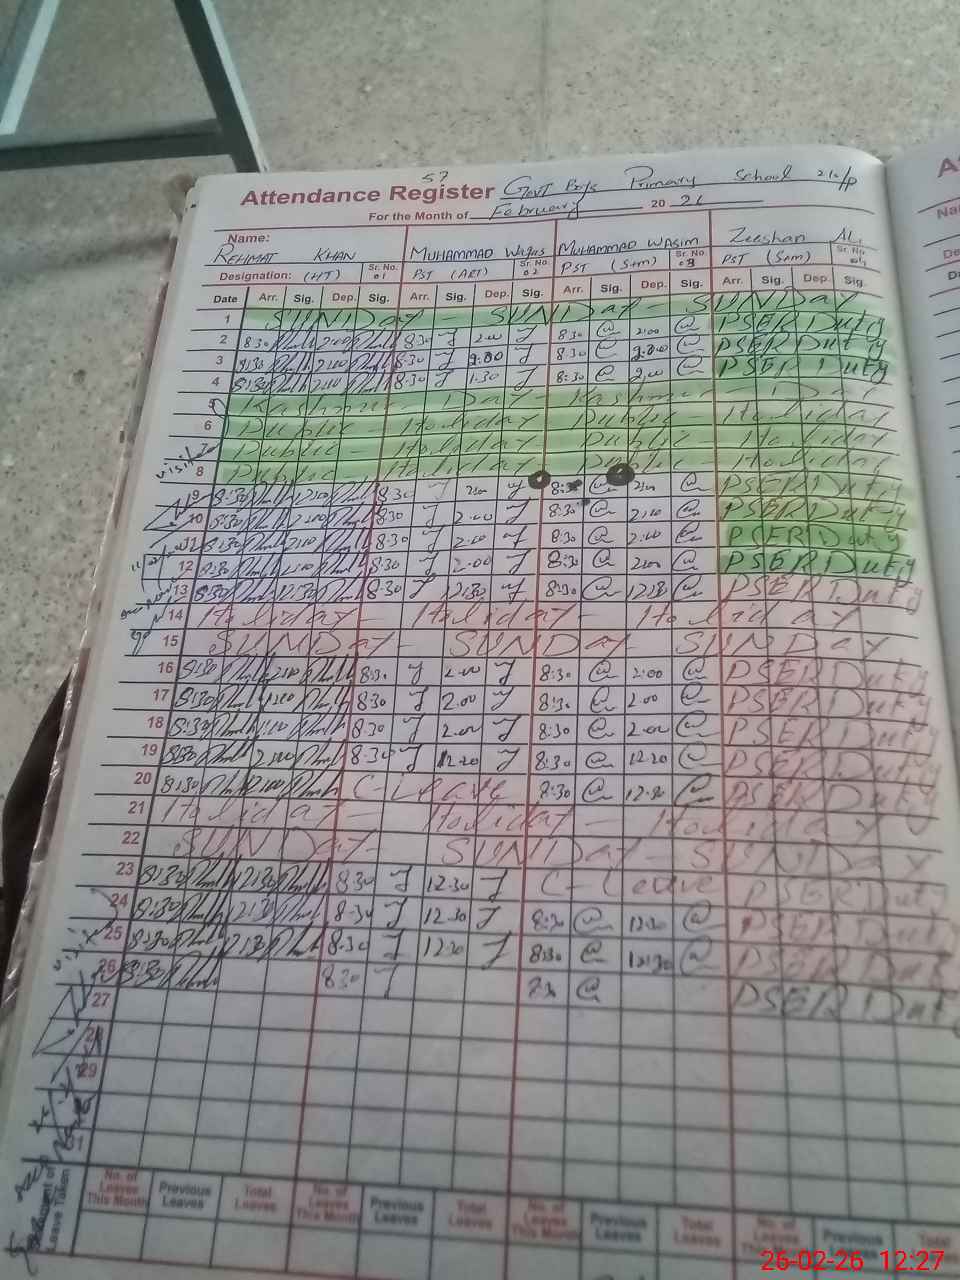 57
Attendance Register Govt Boys Primary School 212/P
For the Month of February 20 26
Name: REHMAT KHAN MUHAMMAD Waqas MUHAMMAD WASIM Zeeshan ALi
Designation: (HT) Sr. No. 01 PST (ART) Sr. No. 02 PST (S+m) Sr. No. 03 PST (S+m) Sr. No. 04
Date Arr. Sig. Dep. Sig. Arr. Sig. Dep. Sig. Arr. Sig. Dep. Sig. Arr. Sig. Dep. Sig.
1 SUNDay - SUNDay - SUNDay
2 8:30 2:00 8:30 2:00 8:30 2:00 PSER Duty
3 8:30 2:00 8:30 2:00 8:30 2:00 PSER Duty
4 8:30 2:00 8:30 1:30 8:30 2:00 PSER Duty
5 Kashmir - Day - Kashmir - Day
6 Public - Holiday - Public - Holiday
7 Public - Holiday - Public - Holiday
8 Public - Holiday - Public - Holiday
visit
9 8:30 2:00 8:30 2:00 8:30 2:00 PSER Duty
10 8:30 2:00 8:30 2:00 8:30 2:00 PSER Duty
11 8:30 2:00 8:30 2:00 8:30 2:00 PSER Duty
12 8:30 2:00 8:30 2:00 8:30 2:00 PSER Duty
13 8:30 12:30 8:30 12:30 8:30 12:30 PSER Duty
14 Holiday - Holiday - Holiday
15 SUNDay - SUNDay - SUNDay
16 8:30 2:00 8:30 2:00 8:30 2:00 PSER Duty
17 8:30 2:00 8:30 2.00 8:30 2.00 PSER Duty
18 8:30 2:00 8:30 2.00 8:30 2:00 PSER Duty
19 8:30 2:00 8:30 12:30 8:30 12:30 PSER Duty
20 8:30 2:00 C-Leave 8:30 12:30 PSER Duty
21 Holiday - Holiday - Holiday
22 SUNDay - SUNDay - SUNDay
23 8:30 12:30 8:30 12:30 C-Leave PSER Duty
24 8:30 12:30 8:30 12:30 8:30 12:30 PSER Duty
25 8:30 12:30 8:30 12:30 8:30 12:30 PSER Duty
visit
26 8:30 8:30 PSER Duty
27
28
29
31
Leave Taken No. of Leaves This Month Previous Leaves Total Leaves No. of Leaves This Month Previous Leaves Total Leaves No. of Leaves This Month Previous Leaves Total Leaves No. of Leaves This Month Previous Leaves Total
26-02-26 12:27